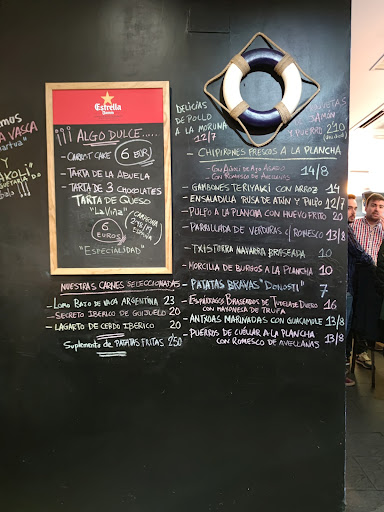 mos
A VASCA
artua"
Y
AKOLI
Estrella
Damm
¡¡¡ ALGO DULCE.....
- CARROT CAKE 6 EUR
- TARTA DE LA ABUELA
- TARTA DE 3 CHOCOLATES
TARTA DE QUESO
"LA VIÑA"
6
EUROS
CAMPEONA
ESPAÑA
"ESPECIALIDAD"
NUESTRAS CARNES SELECCIONADAS
- LOMO BAJO DE VACA ARGENTINA 23
- SECRETO IBERICO DE GUIJUELO 20
- LAGARTO DE CERDO IBERICO 20
Suplemento de PATATAS FRITAS 2'50
DELICIAS
DE POLLO
A LA MORUNA
12/7
JAMÓN
Y PUERRO 2'10
- CHIPIRONES FRESCOS A LA PLANCHA
- CON ALIOLI DE AJO ASADO 14/8
- CON ROMESCO DE AVELLANAS
- GAMBONES TERIYAKI CON ARROZ 14
- ENSALADILLA RUSA DE ATÚN Y PULPO 12/7
- PULPO A LA PLANCHA CON HUEVO FRITO 20
- PARRILLADA DE VERDURAS C/ROMESCO 13/8
- TXISTORRA NAVARRA BRASEADA 10
- MORCILLA DE BURGOS A LA PLANCHA 10
- PATATAS BRAVAS "DONOSTI" 7
- ESPÁRRAGOS BRASEADOS DE TUDELA DE DUERO 16
CON MAYONESA DE TRUFA
- ANTXOAS MARINADAS CON GUACAMOLE 13/8
- PUERROS DE CUÉLLAR A LA PLANCHA 13/8
CON ROMESCO DE AVELLANAS